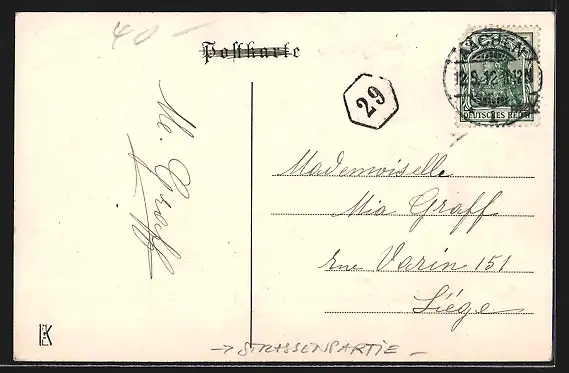 40 –
Postkarte
AACHEN
12.9.12
1
DEUTSCHES REICH
29
Me. Graff
Mademoiselle
Mia Graff
Rue Varin 151
Liége
K
→ STRASSENPARTIE –